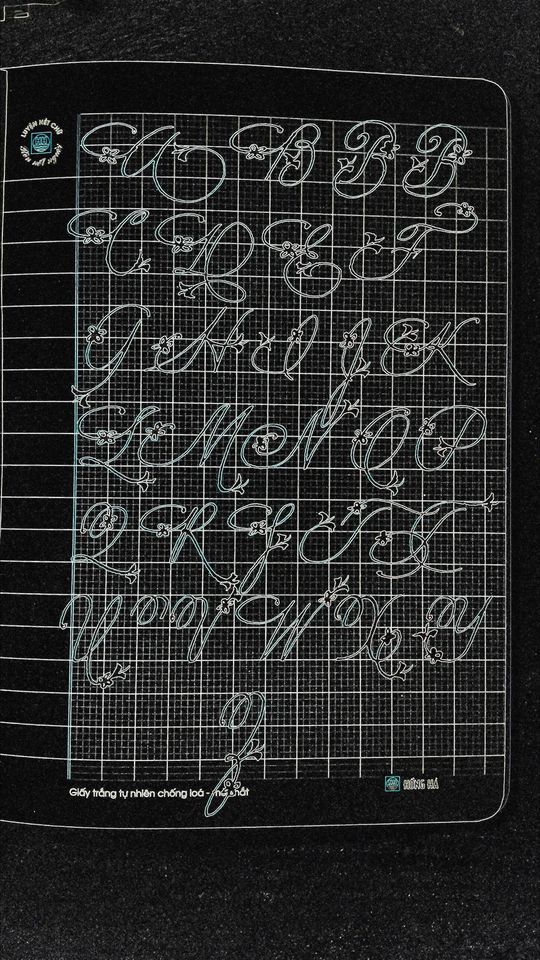 LUYỆN NÉT CHỮ
B B B
C D E F
G H I J K
L M N O P
Q R S T
U V W X Y
Z
Giấy trắng tự nhiên chống loá -
HỒNG HÀ